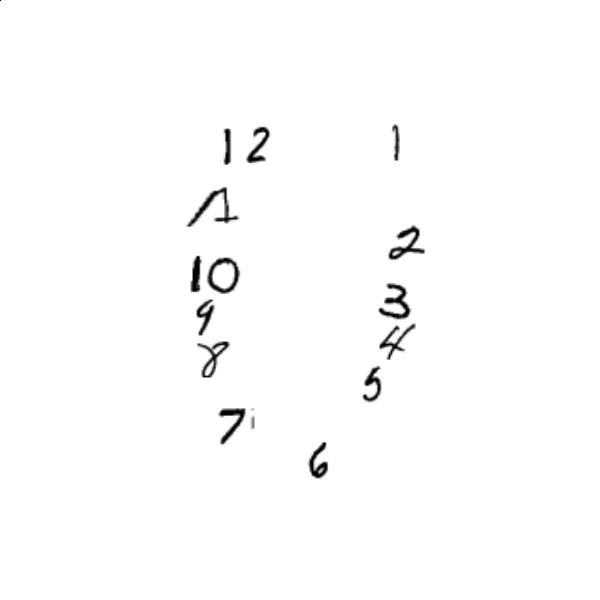 12 1
11
2
10
3
9
4
8
5
7
6